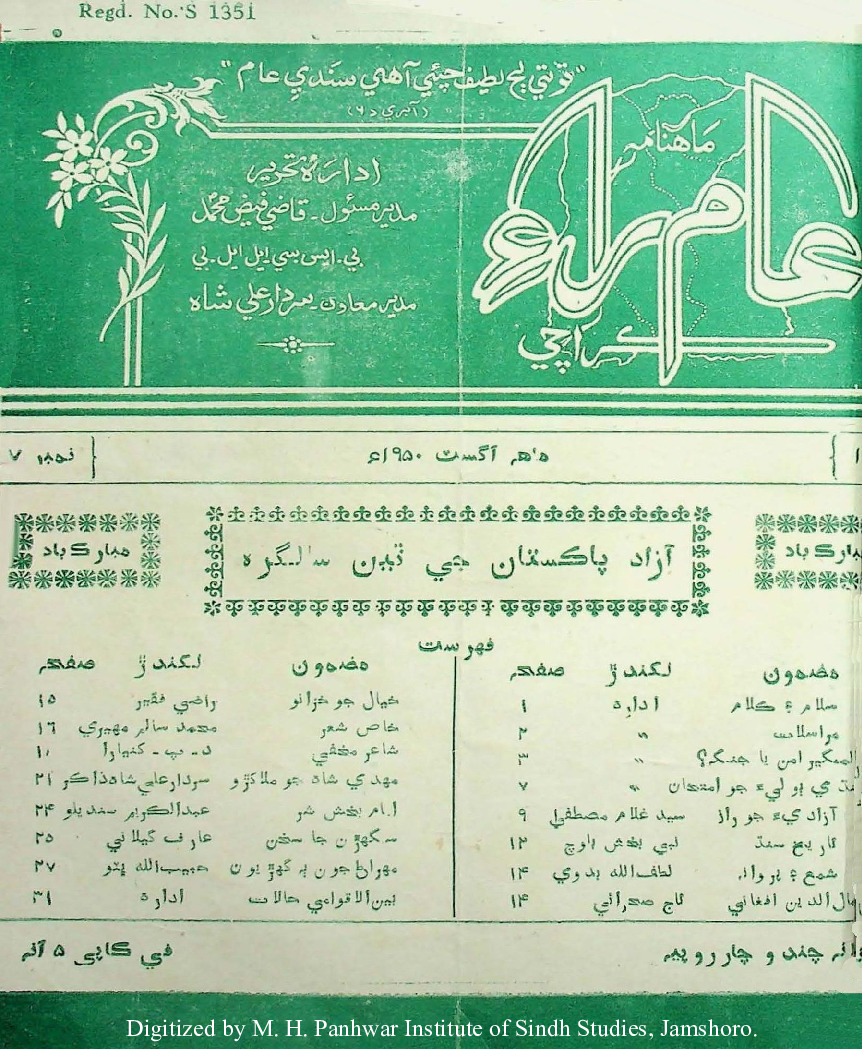 Regd. No. S 1351
"قوتي پچ لطيف چئي آهي سندي عام"
ماهنامه
عام راءِ
ڪراچي
ادارهٔ تحرير
مدير مسئول - قاضي فيض محمد
بي. ايس سي ايل ايل. بي
مدير معاون - سردار علي شاه
ماهه آگسٽ ۱۹۵۰ع
نمبر ۷
مبارڪ باد
آزاد پاڪستان جي ٽين سالگره
مبارڪ باد
فهرست
مضمون لکندڙ صفحه
سلام ۽ ڪلام اداره ۱
مراسلات " ۲
عالمگير امن يا جنگ؟ " ۳
جو امتحان " ۷
آزاديءَ جو راز سيد غلام مصطفيٰ ۹
تاريخ سنڌ نبي بخش بلوچ ۱۲
شمع ۽ پروانه لطف الله بدوي ۱۴
جمال الدين افغاني تاج صحرائي ۱۴
مضمون لکندڙ صفحه
خيال جو خزانو راضي فقير ۱۵
خاص شعر محمد سالم مهيري ۱۶
شاعر مخفي د. پ.
مهدي شاه جو ملاکڙو سردار علي شاه ذاڪر ۲۱
امام بخش شر عبدالڪريم سنديلو ۲۴
سگهڙن جا سخن عارف گيلاني ۲۵
مهراڻ جون حبيب الله ڀٽو ۲۷
بين الاقوامي حالات اداره ۳۱
چندو چار روپيه
في ڪاپي ۵ آنه
Digitized by M. H. Panhwar Institute of Sindh Studies, Jamshoro.